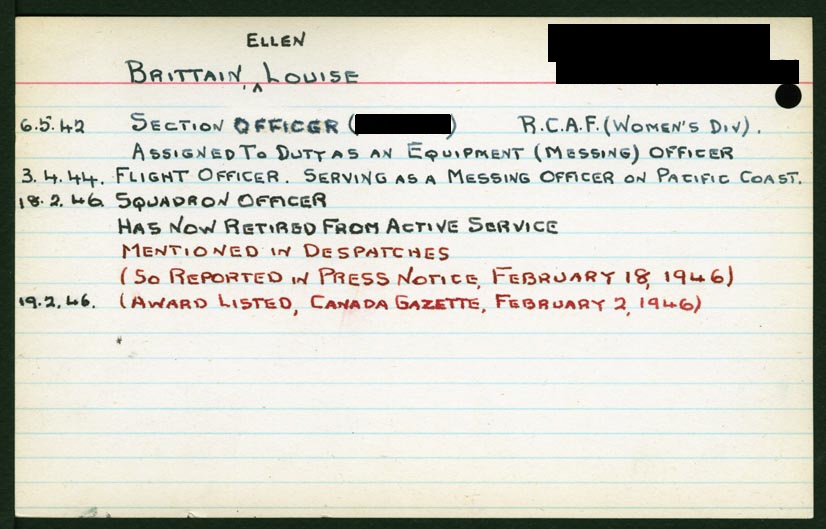 ELLEN
BRITTAIN, ^ LOUISE
6.5.42 SECTION OFFICER ( ) R.C.A.F. (WOMEN'S DIV).
ASSIGNED TO DUTY AS AN EQUIPMENT (MESSING) OFFICER
3.4.44. FLIGHT OFFICER. SERVING AS A MESSING OFFICER ON PACIFIC COAST.
18.2.46 SQUADRON OFFICER
HAS NOW RETIRED FROM ACTIVE SERVICE
MENTIONED IN DESPATCHES
(SO REPORTED IN PRESS NOTICE, FEBRUARY 18, 1946)
19.2.46. (AWARD LISTED, CANADA GAZETTE, FEBRUARY 2, 1946)